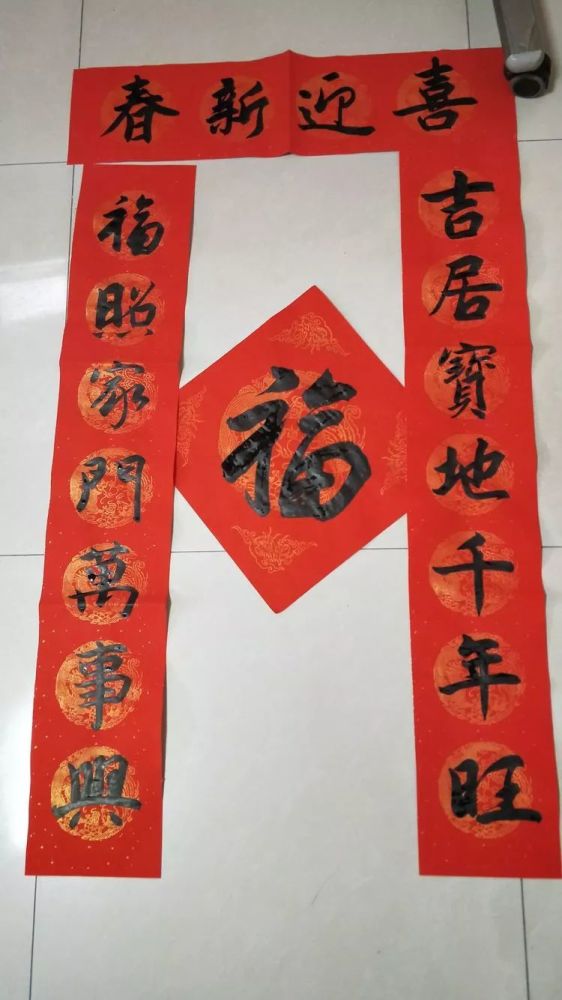 喜迎新春
吉居寶地千年旺
福照家門萬事興
福